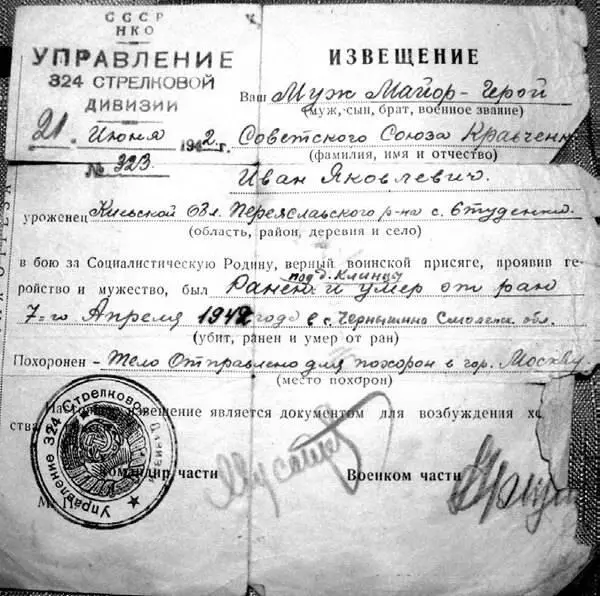 СССР
НКО
УПРАВЛЕНИЕ
324 СТРЕЛКОВОЙ
ДИВИЗИИ
21. Июня 1942 г.
№ 323
ИЗВЕЩЕНИЕ
Ваш Муж Майор - Герой
(муж, сын, брат, военное звание)
Советского Союза Кравченк
(фамилия, имя и отчество)
Иван Яковлевич.
уроженец Киевской Обл. Переяславского р-на с. Студенки.
(область, район, деревня и село)
в бою за Социалистическую Родину, верный воинской присяге, проявив ге-
ройство и мужество, был Ранен под д. Клинцы и умер от ран
7-го Апреля 1942 года в с. Чернышино Смоленск обл.
(убит, ранен и умер от ран)
Похоронен - Тело Отправлено для похорон в гор. Москву.
(место похорон)
Настоящее извещение является документом для возбуждения хо
ства
Командир части
Военком части
М. П.
Управление 324 Стрелковой Дивизии